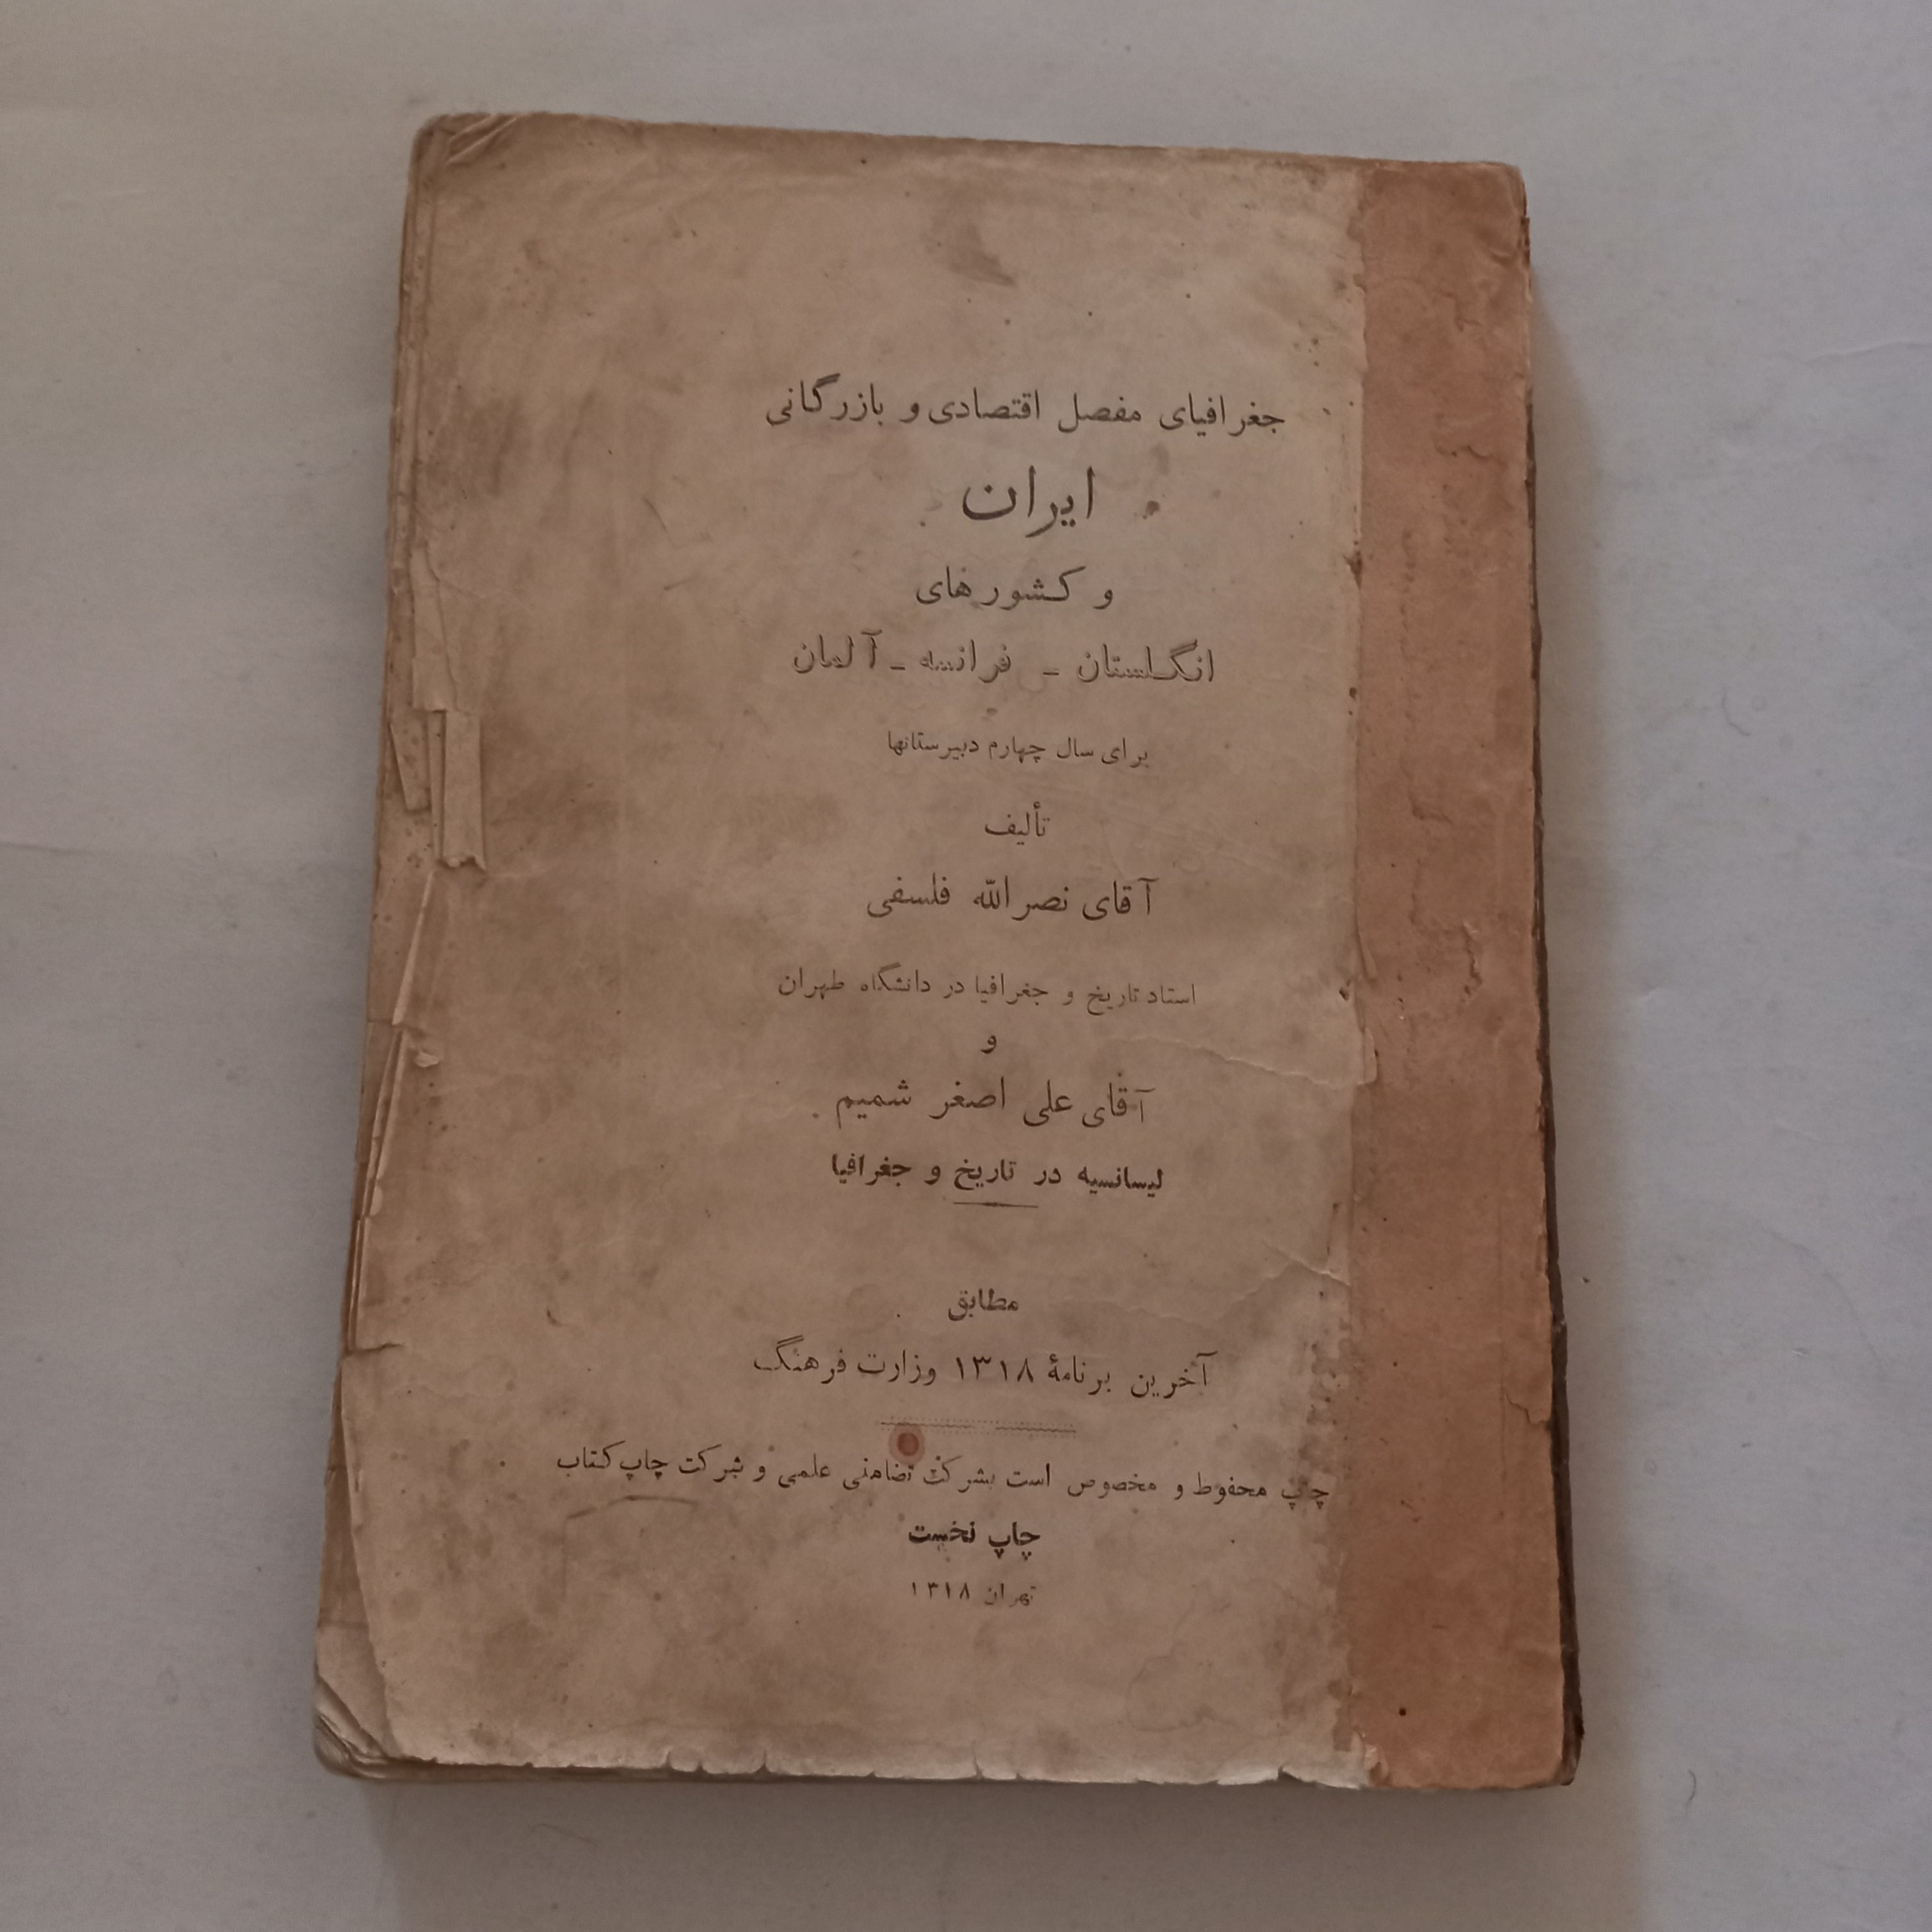 جغرافیای مفصل اقتصادی و بازرگانی
ایران
و کشورهای
انگلستان - فرانسه - آلمان
برای سال چهارم دبیرستانها
تألیف
آقای نصرالله فلسفی
استاد تاریخ و جغرافیا در دانشگاه طهران
و
آقای علی اصغر شمیم
لیسانسیه در تاریخ و جغرافیا
مطابق
آخرین برنامهٔ ۱۳۱۸ وزارت فرهنگ
چاپ محفوظ و مخصوص است بشرکت تضامنی علمی و شرکت چاپ کتاب
چاپ نخست
تهران ۱۳۱۸